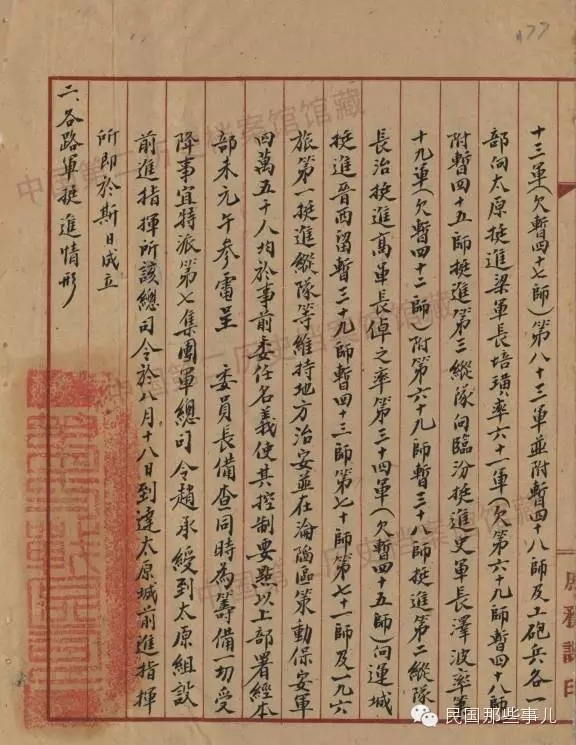 177
十三軍(欠暫四十七師)第八十三軍並附暫四十八師及工砲兵各一
部向太原挺進梁軍長培璜率六十一軍(欠第六十九師暫四十八師)
附暫四十五師挺進第三縱隊向臨汾挺進史軍長澤波率第
十九軍(欠暫四十二師)附第六十九師暫三十八師挺進第二縱隊
長治挺進高軍長倬之率第三十四軍(欠暫四十五師)向運城
挺進晉西留暫三十九師暫四十三師第七十師第七十一師及一九六
旅第一挺進縱隊等維持地方治安並在淪陷區策動保安軍
四萬五千人均於事前委任名義使其控制要點以上部署經本
部未元午參電呈 委員長備查同時為籌備一切受
降事宜特派第七集團軍總司令趙承綬到太原組設
前進指揮所該總司令於八月十八日到達太原城前進指揮
所即於斯日成立
二、各路軍挺進情形
中国第二历史档案馆馆藏
中国第二历史档案馆馆藏
中国第二历史档案馆馆藏
民国那些事儿